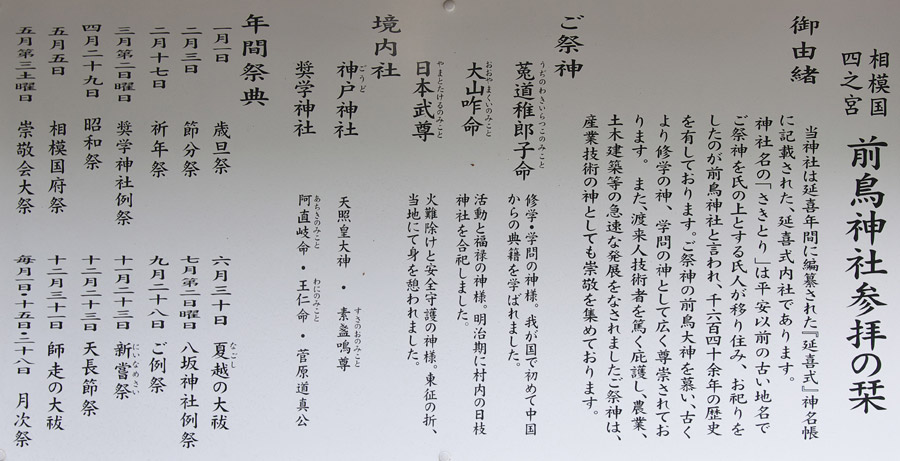 相模国
四之宮
前鳥神社参拝の栞
御由緒
当神社は延喜年間に編纂された『延喜式』神名帳
に記載された、延喜式内社であります。
神社名の「さきとり」は平安以前の古い地名で
ご祭神を氏の上とする氏人が移り住み、お祀りを
したのが前鳥神社と言われ、千六百四十余年の歴史
を有しております。ご祭神の前鳥大神を慕い、古く
より修学の神、学問の神として広く尊崇されてお
ります。また、渡来人技術者を篤く庇護し、農業、
土木建築等の急速な発展をなされましたご祭神は、
産業技術の神としても崇敬を集めております。
ご祭神
菟道稚郎子命
うぢのわきいらつこのみこと
修学・学問の神様。我が国で初めて中国
からの典籍を学ばれました。
大山咋命
おおやまくいのみこと
活動と福禄の神様。明治期に村内の日枝
神社を合祀しました。
日本武尊
やまとたけるのみこと
火難除けと安全守護の神様。東征の折、
当地にて身を憩われました。
境内社
神戸神社
ごうど
天照皇大神・素盞嗚尊
すさのおのみこと
奨学神社
阿直岐命・王仁命・菅原道真公
あちきのみこと
わにのみこと
年間祭典
一月一日 歳旦祭
二月三日 節分祭
二月十七日 祈年祭
三月第二日曜日 奨学神社例祭
四月二十九日 昭和祭
五月五日 相模国府祭
五月第三土曜日 崇敬会大祭
六月三十日 夏越の大祓
なごし
七月第二日曜日 八坂神社例祭
九月二十八日 ご例祭
十一月二十三日 新嘗祭
にいなめさい
十二月二十三日 天長節祭
十二月三十一日 師走の大祓
毎月一日・十五日・二十八日 月次祭